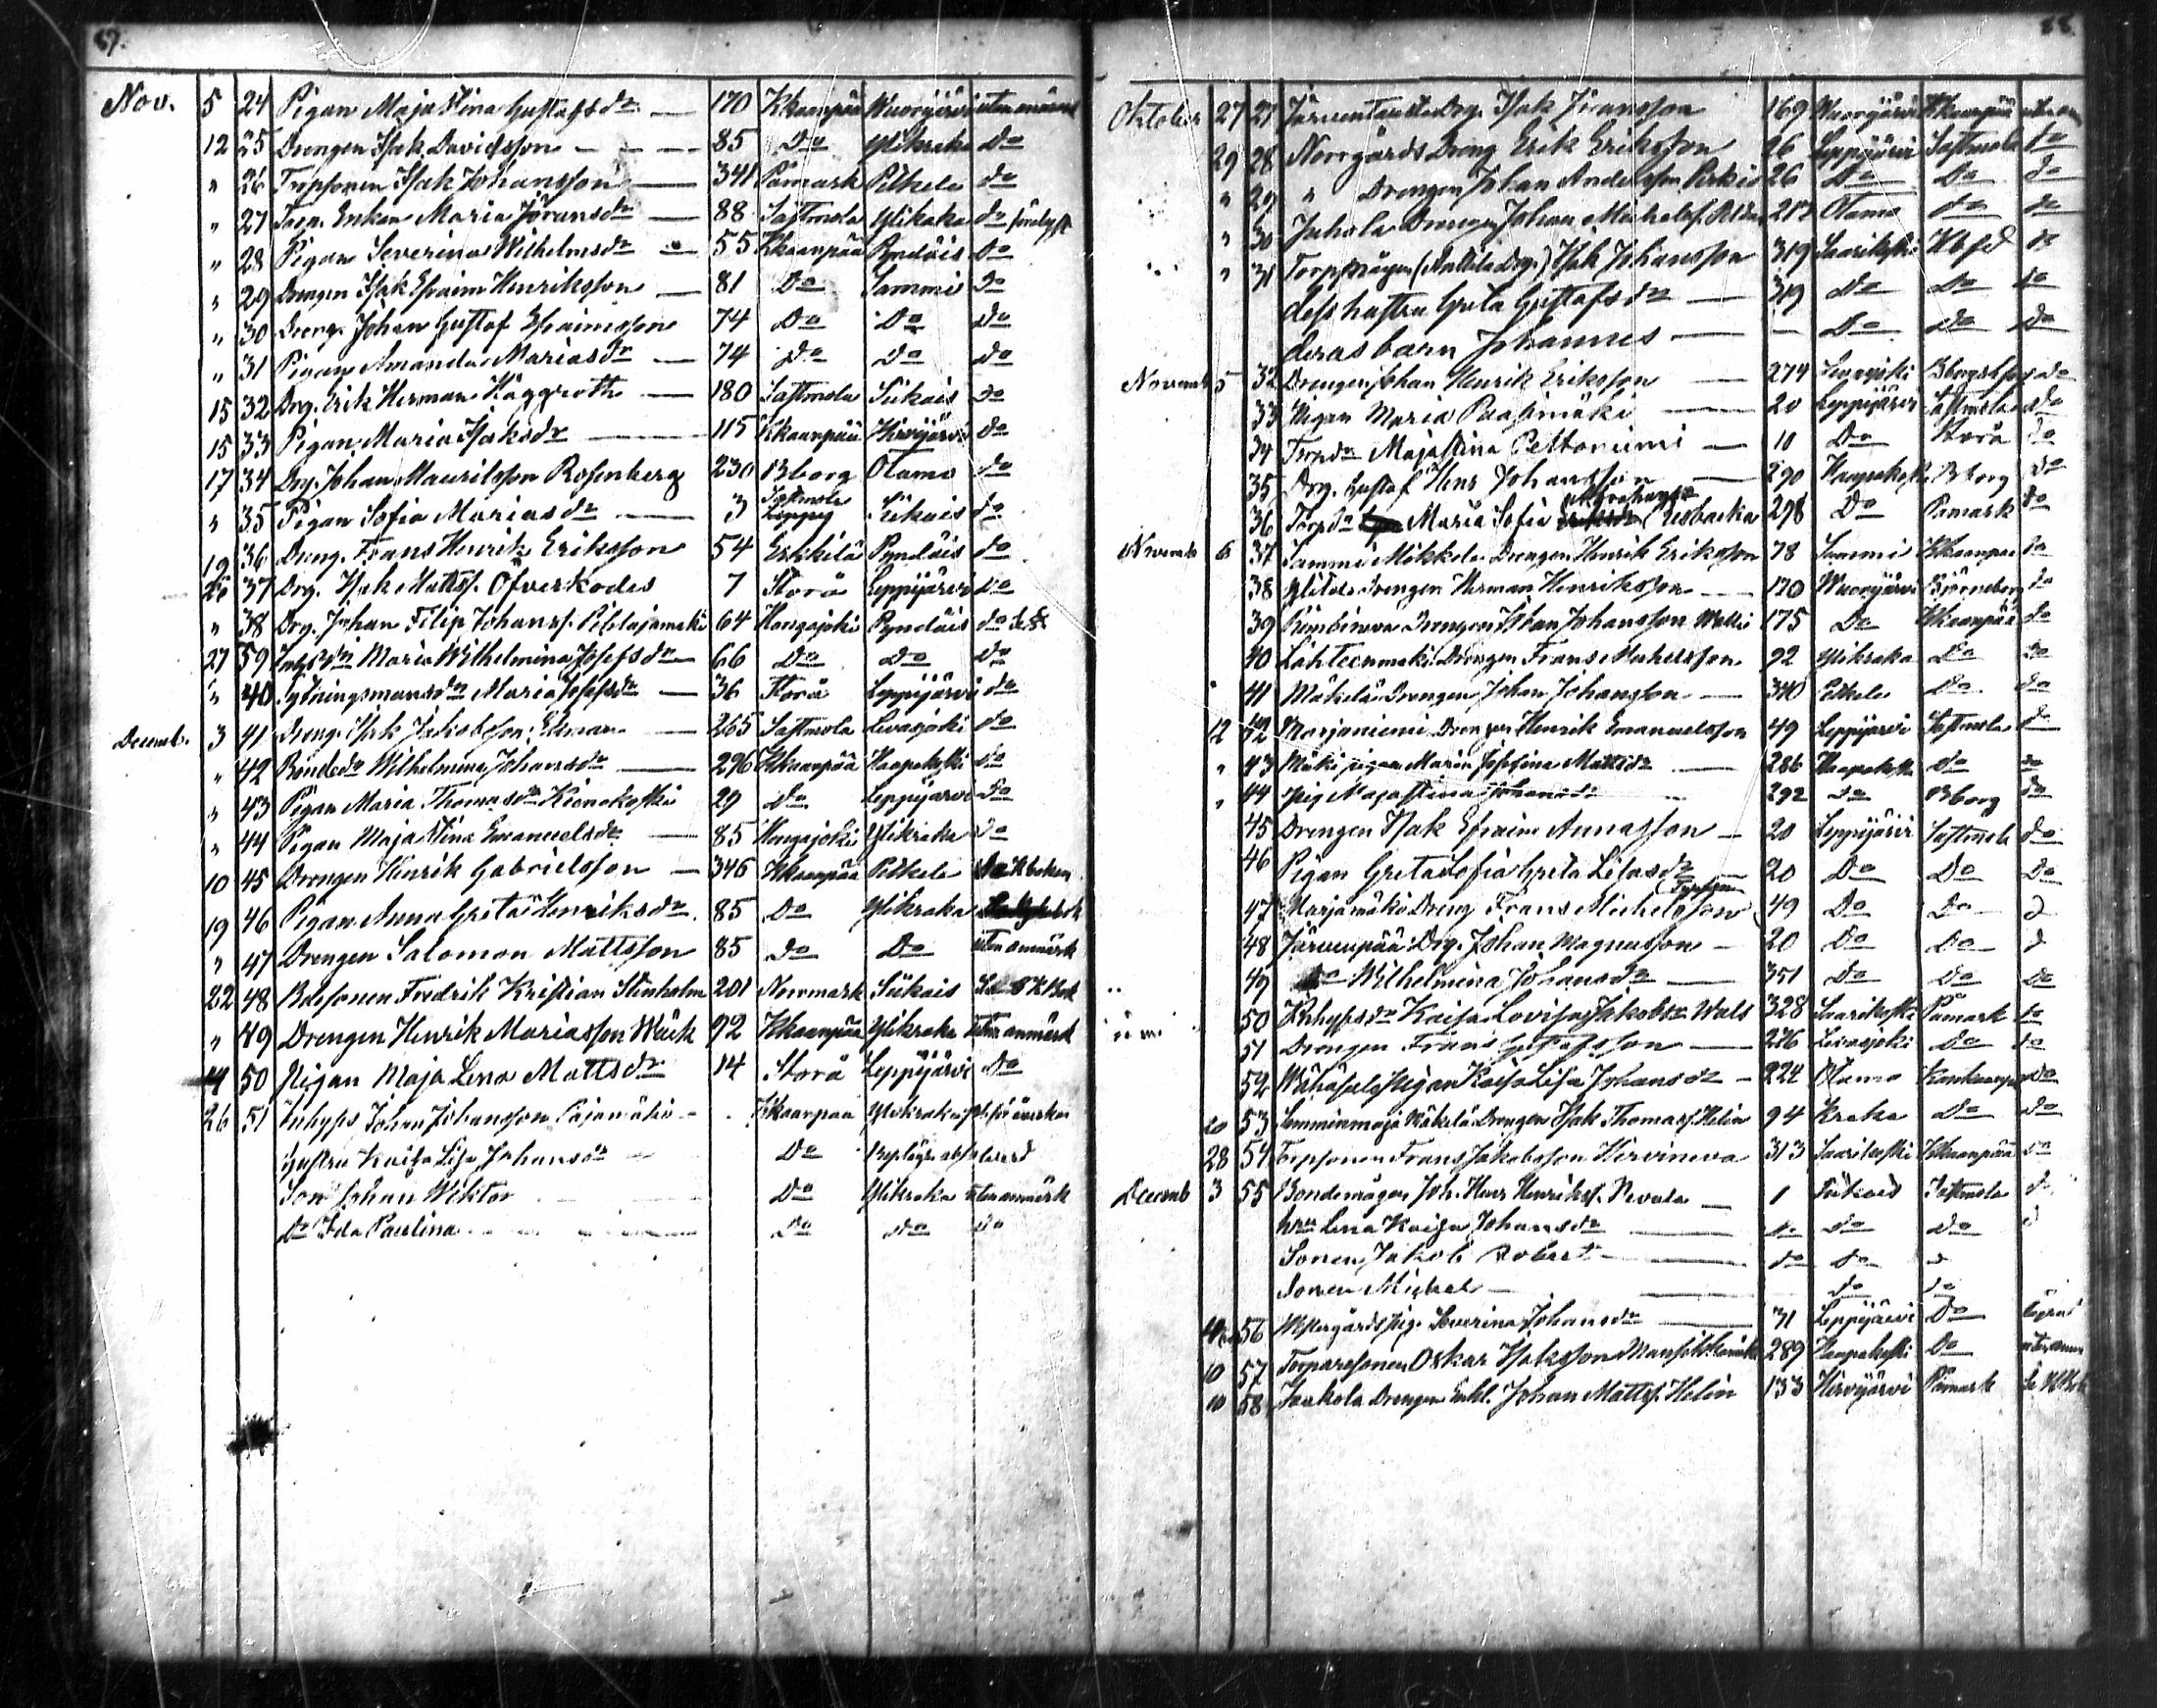 87.
Nov. 5 24 Pigan Maja Stina Gustafsdr — 170 Kkaanpää Wuorijärvi utan anmärk
12 25 Drengen Isak Davidsson — 85 Do Ylikraka Do
" 26 Torpsonen Isak Johansson — 341 Påmark Petkele do
" 27 Torp. Enkan Maria Jöransdr — 88 Sastmola Ylikraka do
" 28 Pigan Severina Wilhelmsdr — 55 Kkaanpää Pyndöis Do
" 29 Drengen Isak Efraim Henriksson — 81 Do Sammi Do
" 30 Dreng. Johan Gustaf Efraimsson 74 Do Do Do
" 31 Pigan Amanda Mariasdr — 74 Do Do Do
15 32 Drg. Erik Herman Häggroth — 180 Sastmola Siikais Do
15 33 Pigan Maria Isaksdr — 115 Kkaanpää Hirvijärvi Do
17 34 Drg. Johan Mauritsson Rosenberg 230 Bborg Otamo do
" 35 Pigan Sofia Mariasdr — 3 Sastmola Siikais do
19 36 Dreng. Frans Henrik Eriksson 54 Pyndöis do
20 37 Drg. Isak Mattss. Öfverkodes 7 Storå Leppijärvi do
" 38 Drg. Johan Filip Johanss. 64 Hongojoki Pyndöis do
27 39 Maria Wilhelmina Josefsdr 66 Do Do Do
" 40 Sytningsmansdr Maria Josefsdr — 36 Storå Leppijärvi do
Decemb. 3 41 Dreng. Isak Edman — 265 Sastmola Levasjoki do
" 42 Bondedr Wilhelmina Johansdr — 296 Kkaanpää Haapakoski do
" 43 Pigan Maria Thomasdr 29 do Leppijärvi do
" 44 Pigan Maja Stina Emanuelsdr — 85 Hongojoki Ylikraka do
10 45 Drengen Henrik Gabrielsson — 346 Kkaanpää Petkele
19 46 Pigan Anna Greta Henriksdr 85 Do Ylikraka
" 47 Drengen Salomon Mattsson 85 do Do utan anmärk
22 48 Fredrik Kristian Stenholm 201 Norrmark Siikais
" 49 Drengen Henrik Mariasson Wäck 92 Kkaanpää Ylikraka utan anmärk
" 50 Pigan Maja Lena Mattsdr 14 Storå Leppijärvi do
26 51 Inhyss Johan Johansson Pajamäki Kkaanpää Ylikraka
hustru Kaisa Lisa Johansdr Do
Son Johan Wiktor Do Ylikraka utan anmärk
Dr Ida Paulina Do do do
88.
Oktober 27 27 Drg. Isak Jöransson 169 Wuorijärvi Kkaanpää
29 28 Norrgårds Dreng Erik Eriksson 26 Leppijärvi Sastmola do
" 29 " Drengen Johan Andersson 26 Do Do do
" 30 Juhola Drengen Johan 217 Otamo do do
" 31 Drg.) Isak Johansson 319 Saarikoski
dess hustru Greta Gustafsdr — 319 do do do
deras barn Johannes — Do Do Do
Novemb 5 32 Drengen Johan Henrik Eriksson — 274 Levasjoki do
33 Pigan Maria Paasimäki — 20 Leppijärvi Sastmola do
34 Torpdr Maja Stina Peltoniemi — 10 Do Storå do
35 Drg. Gustaf Henr Johansson 290 Haapakoski Bborg do
36 Torpdr Maria Sofia 298 Do Påmark do
Novemb 6 37 Sammi Mikkola Drengen Henrik Eriksson 78 Sammi Kkaanpää do
38 Drengen Herman Henriksson — 170 Wuorijärvi Björneborg do
39 Drengen Johan Johansson 175 Do Kkaanpää do
40 Lähteenmäki Drengen Frans Michelsson 92 Ylikraka Do do
41 Mäkelä Drengen Johan Johansson — 340 Petkele Do do
12 42 Marjaniemi Drengen Henrik Emanuelsson 49 Leppijärvi Sastmola do
" 43 Mäki pigan Maria Josefina Mattsdr — 286 Haapakoski do do
" 44 Pig Maja Stina Johansdr 292 do Bborg do
45 Drengen Isak Efraim Annasson — 20 Leppijärvi Sastmola do
46 Pigan Greta Sofia Greta Lisasdr 20 Do Do Do
47 Marjamäki Dreng Frans Michelsson 49 Do Do
48 Järvenpää Drg. Johan Magnusson — 20 Do Do
49 Wilhelmina Johansdr — 351 Do Do Do
50 Inhysdr Kaisa Lovisa Jakobsdr 328 Saarikoski Påmark do
51 Drengen Frans Gustafsson — 276 Levasjoki Do do
52 Pigan Kaisa Lisa Johansdr — 224 Otamo Kankaanpää do
20 53 Drengen Isak Thomass. Helin 94 Kraka Do Do
28 54 Torpsonen Frans Jakobsson Hirvineva 313 Saarikoski Kkaanpää do
Decemb 3 55 Bondemågen Joh. Henr Henrikss. Nevala — 1 Siikais Sastmola
hru Lena Kaisa Johansdr — do do Do
Sonen Jakob Robert — do do
Sonen Michel — do do
56 Westergårds Pig. Severina Johansdr — 31 Leppijärvi Do
10 57 Torparesonen Oskar Isaksson 289 Haapakoski Do
10 58 Drengen Johan Mattss. Helin 133 Hirvijärvi Påmark